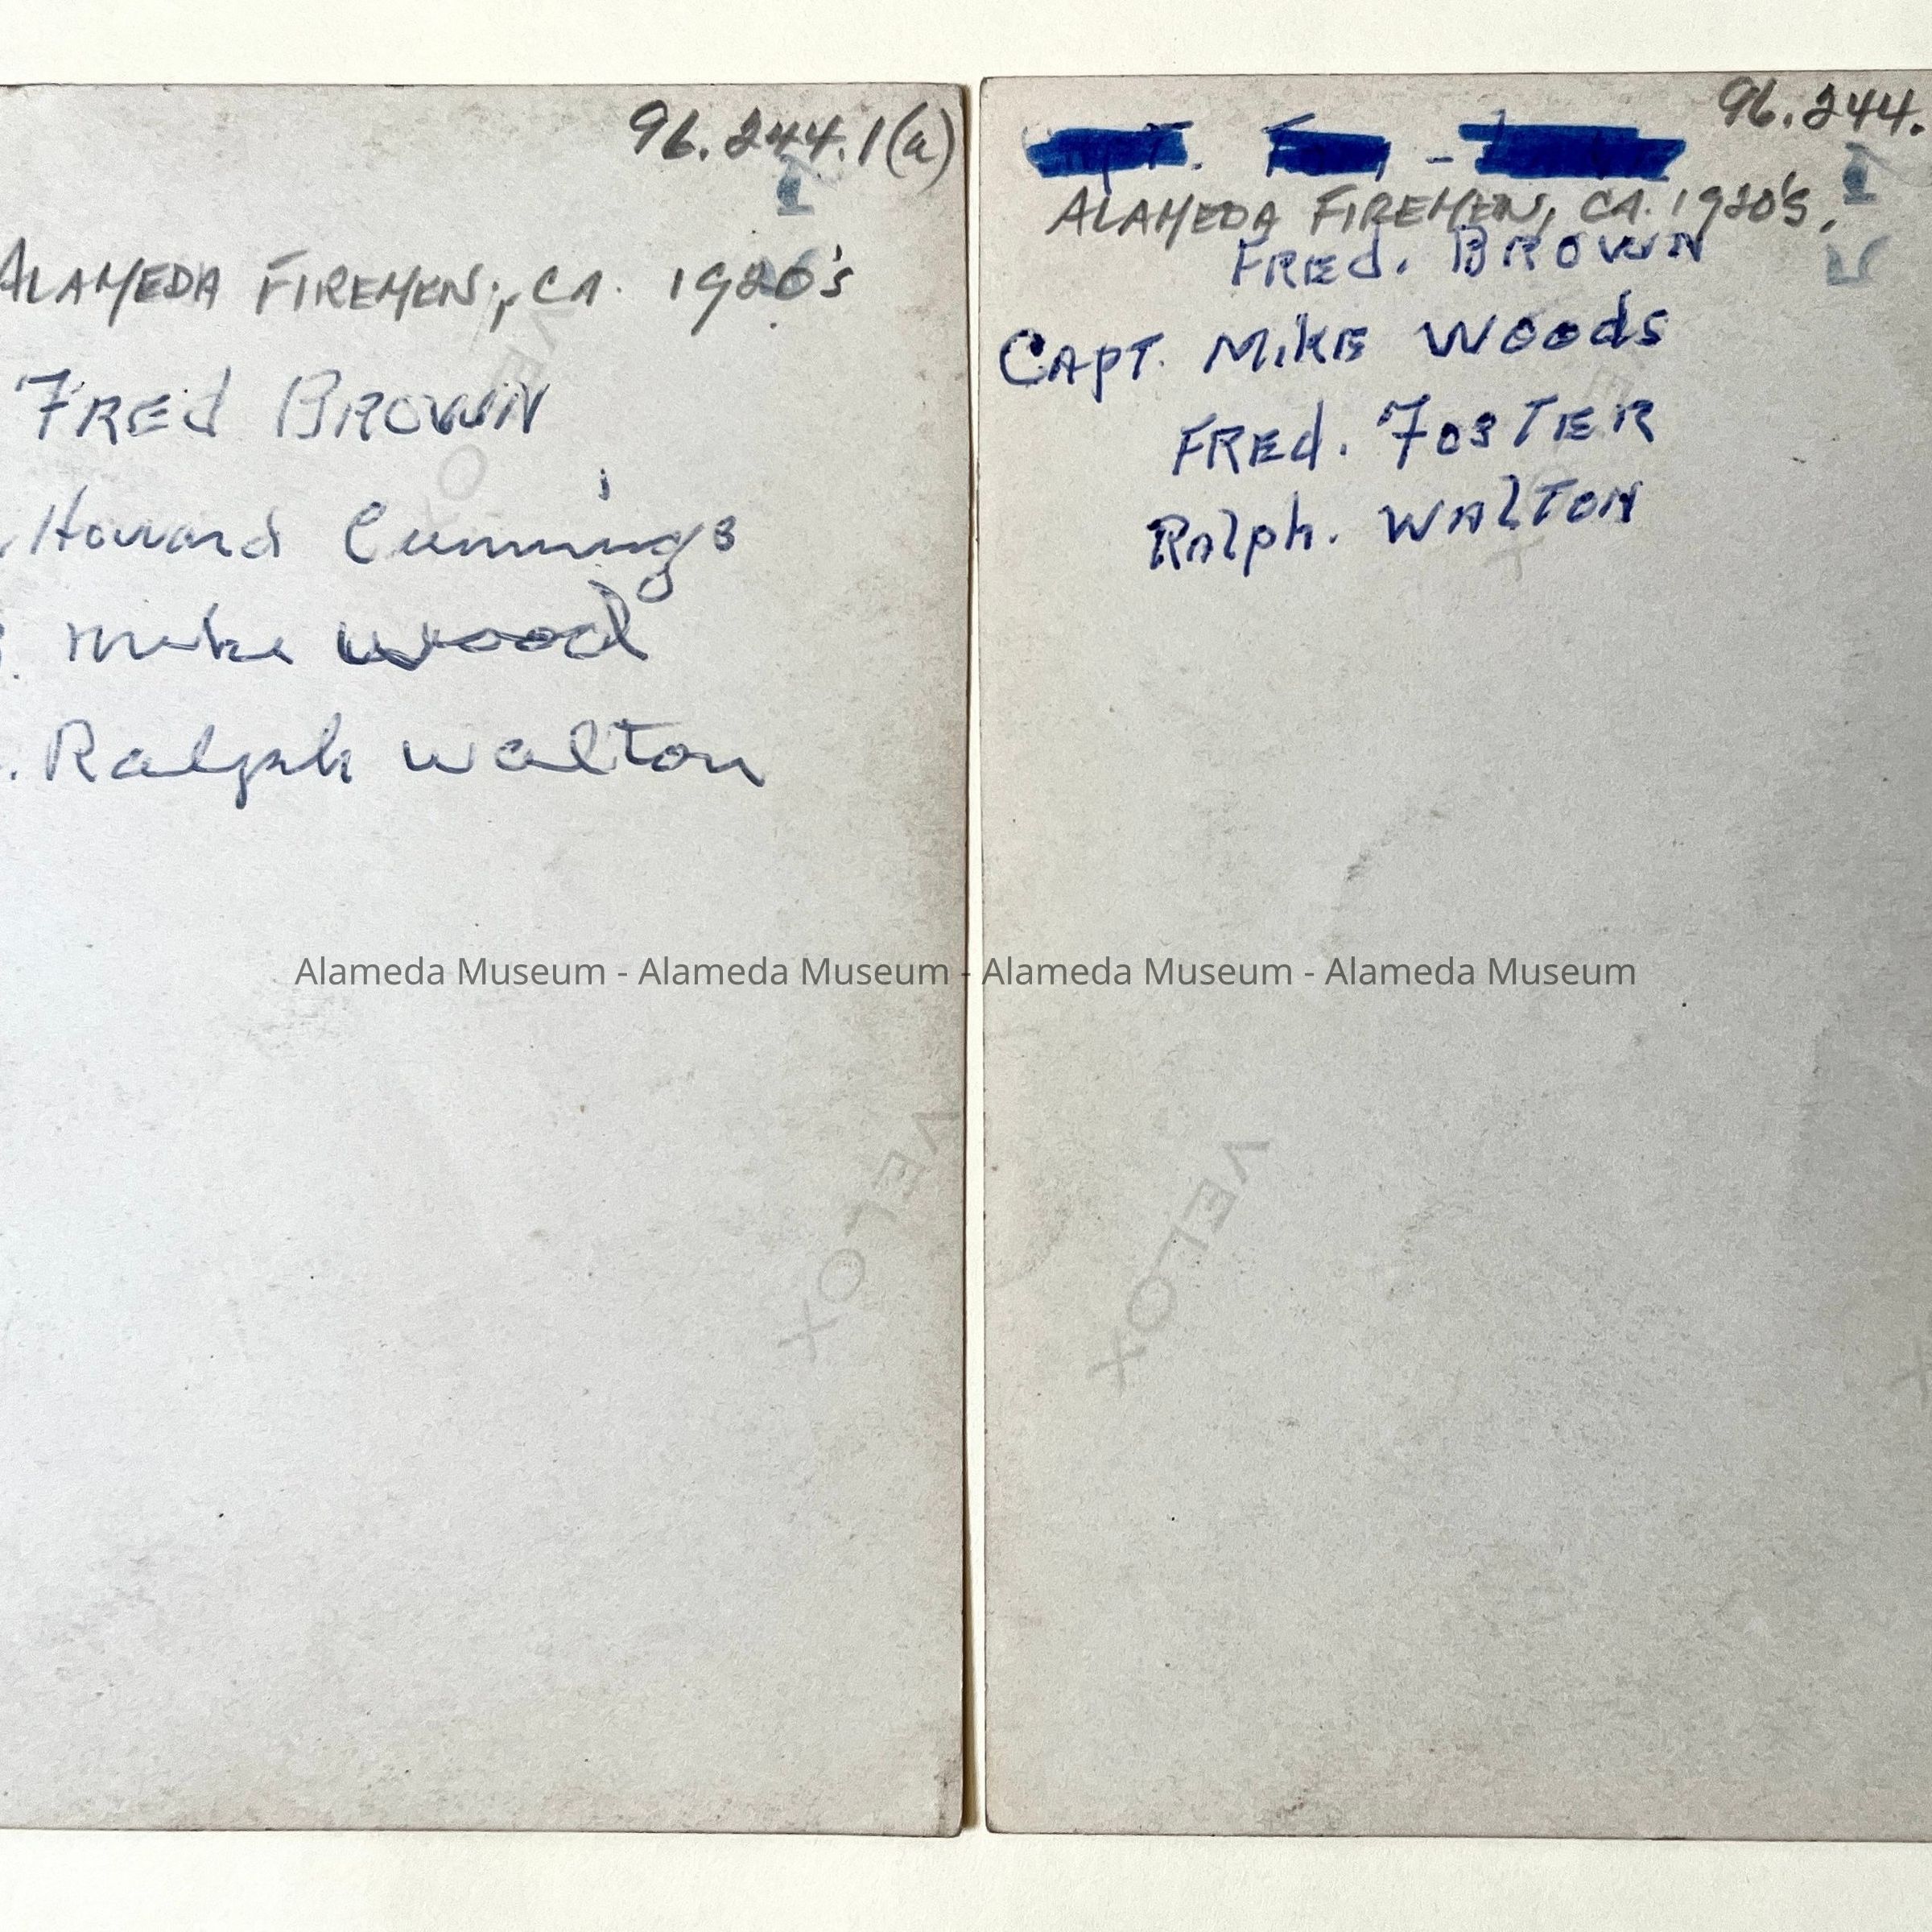 96.244.1(a)
ALAMEDA FIREMEN, CA. 1920's
FREd BROWN
Howard Cummings
mike wood
. Ralph walton
VELOX
VELOX
96.244.
ALAMEDA FIREMEN, CA. 1920's.
FREd. BROWN
CAPT. MikE WOOds
FREd. FOSTER
Ralph. WALTON
VELOX
Alameda Museum - Alameda Museum - Alameda Museum - Alameda Museum